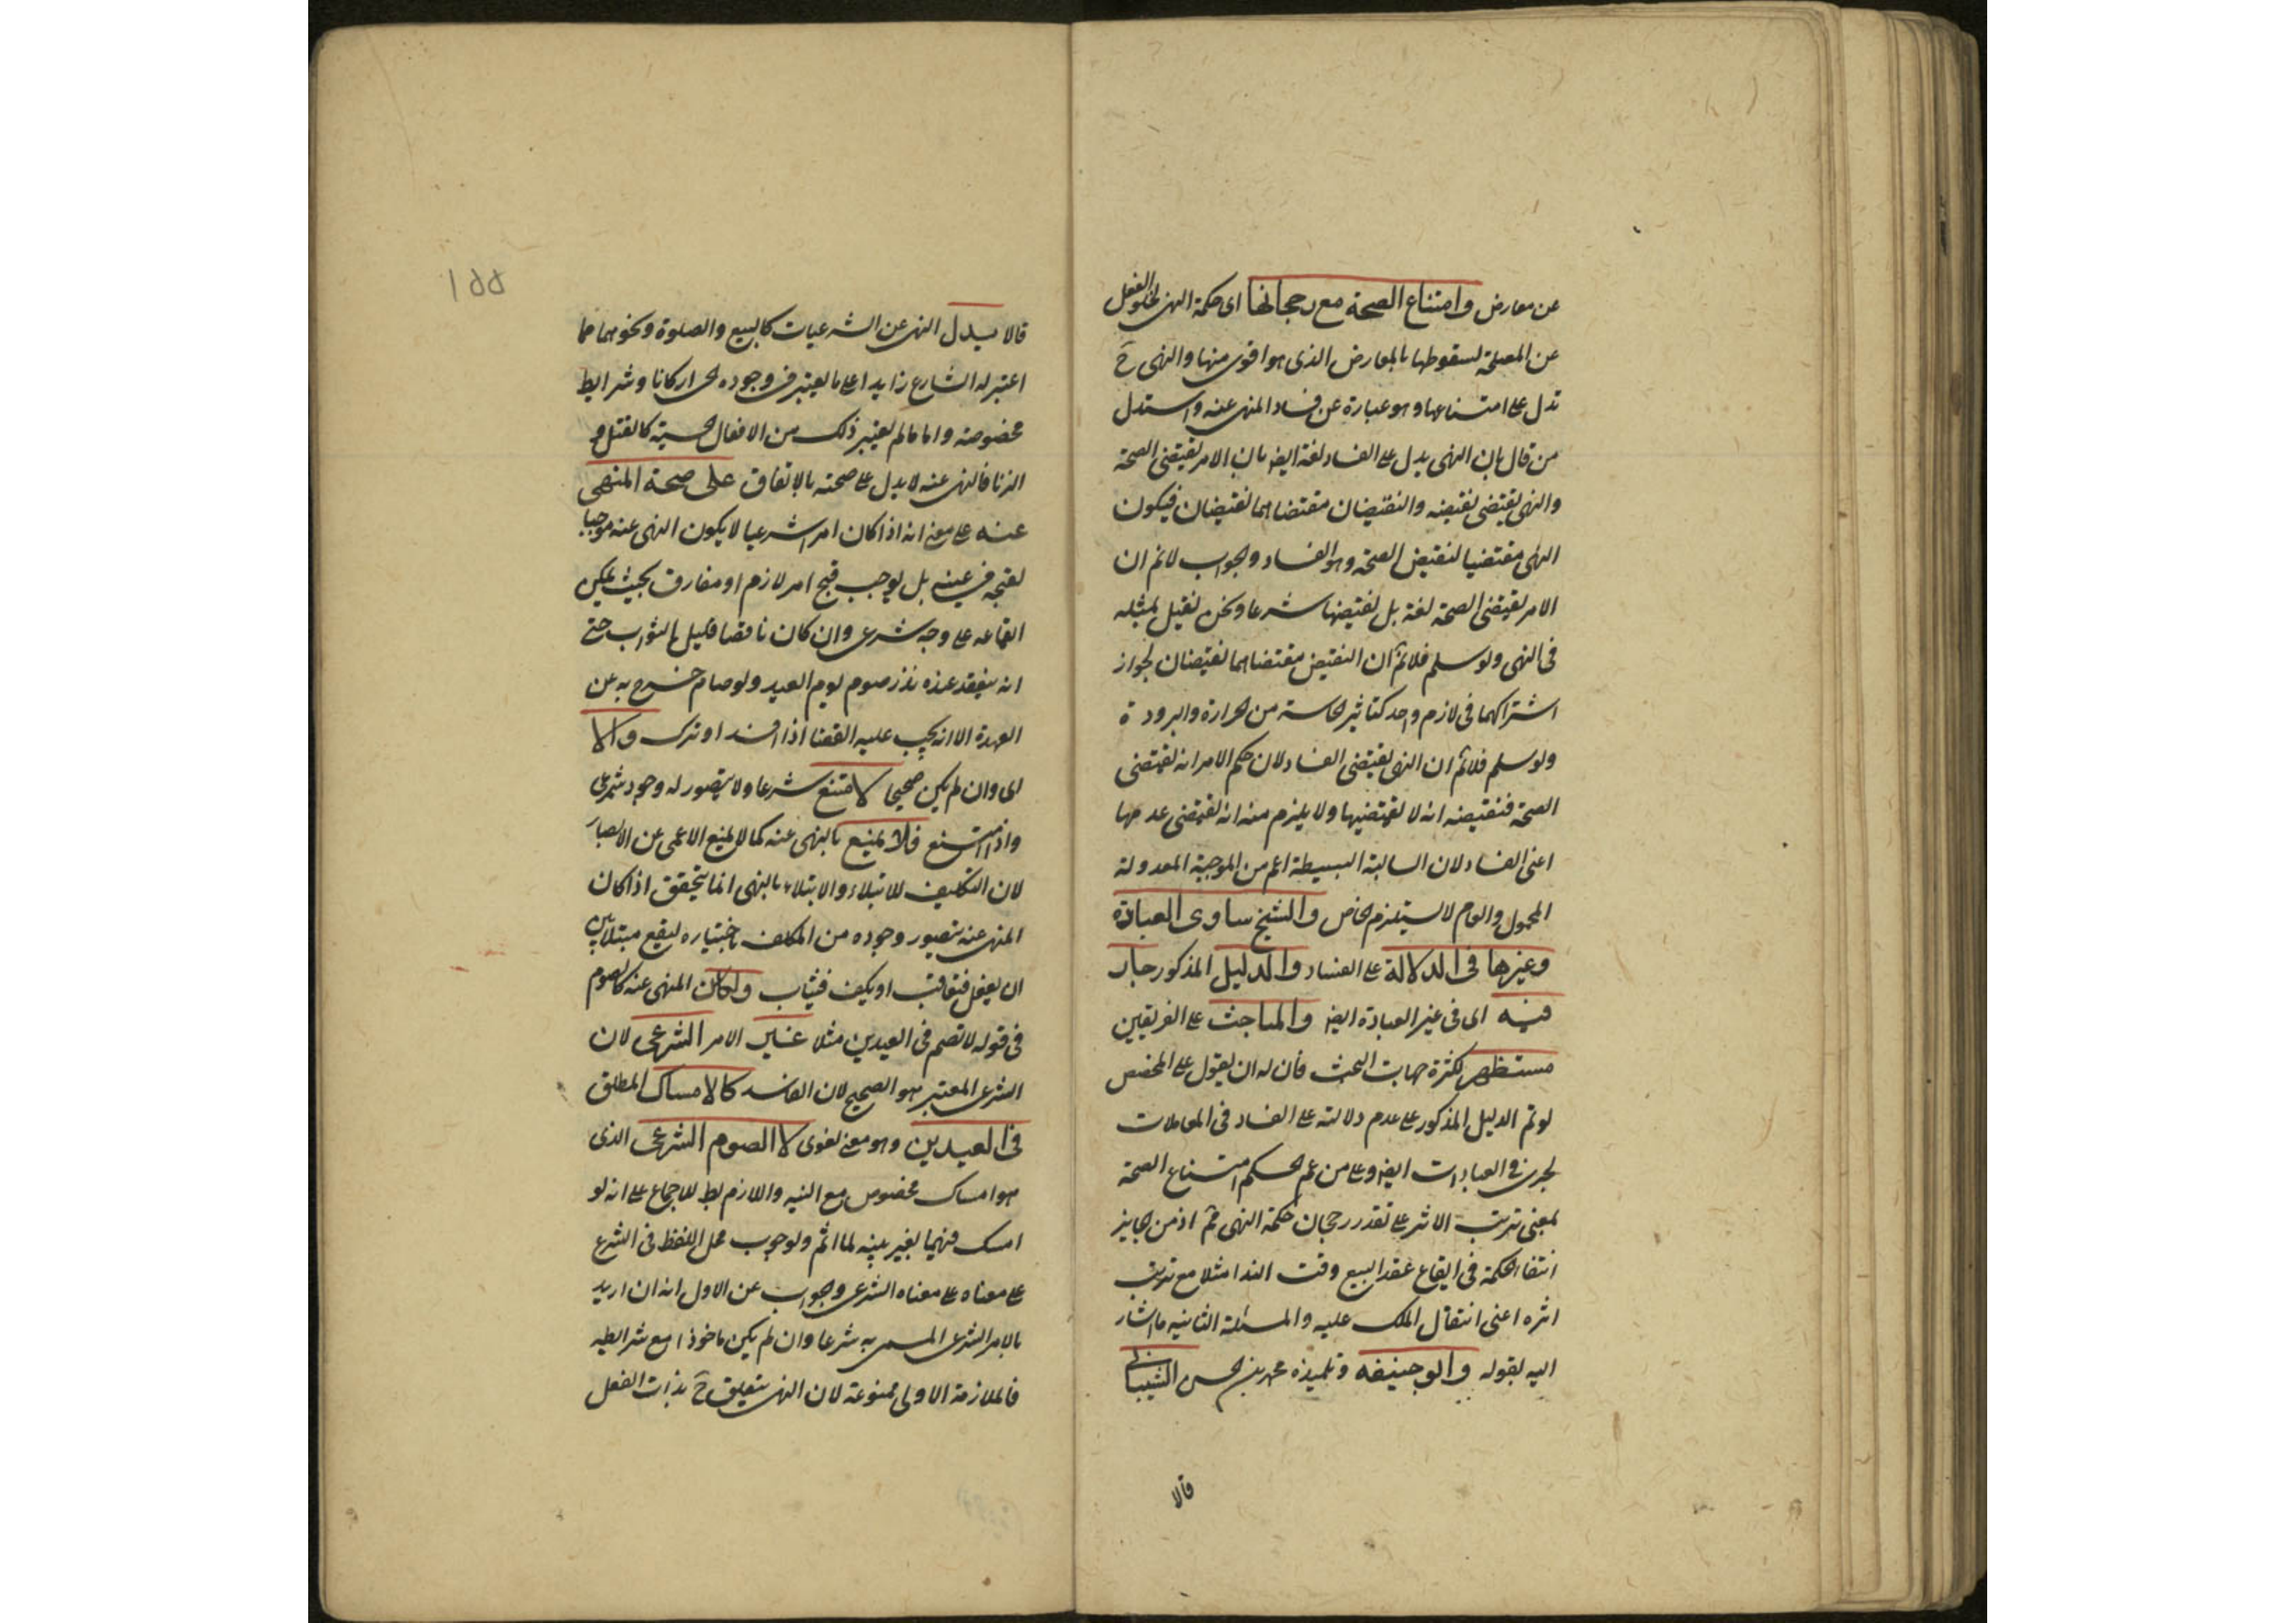 عن معارض وامتناع الصحة مع رجحانها اى حكمة النهى لخلو الفعل
عن المصلحة لسقوطها بالمعارض الذى هو اقوى منها والنهى ح
تدل على امتناعها وهو عبارة عن فساد المنهى عنه واستدل
من قال بان النهى يدل على الفساد لغة ايض بان الامر يقتضى الصحة
والنهى يقتضى نقيضه والنقيضان مقتضاهما نقيضان فيكون
النهى مقتضيا لنقيض الصحة وهو الفساد والجواب لانم ان
الامر يقتضى الصحة لغة بل يقتضيها شرعا ونحن نقيل بمثله
فى النهى ولو سلم فلانم ان النقيض مقتضاهما نقيضان لجواز
اشتراكهما فى لازم واحد كتاثير الحاسة من الحرارة والبرودة
ولو سلم فلانم ان النهى يقتضى الفساد لان حكم الامر انه يقتضى
الصحة فنقيضه انه لا يقتضيها ولا يلزم منه انه يقتضى عدمها
اعنى الفساد لان السالبة البسيطة اعم من الموجبة المعدولة
المحمول والعام لا يستلزم الخاص والشيخ ساوى العبادة
وغيرها فى الدلالة على الفساد والدليل المذكور جار
فيه اى فى غير العبادة ايض والمباحث على الفريقين
مستظهر لكثرة جهات البحث فان له ان يقول على المخصص
لو تم الدليل المذكور على عدم دلالته على الفساد فى المعاملات
لجرى فى العبادات ايض وعلى من عم الحكم امتناع الصحة
بمعنى ترتب الاثر على تقدير رجحان حكمة النهى مم اذ من الجايز
انتفا الحكمة فى ايقاع عقد البيع وقت الندا مثلا مع ترتب
اثره اعنى انتقال الملك عليه والمسئلة الثانيه ما اشار
اليه بقوله وابو حنيفه وتلميذه محمد بن الحسن الشيبانى
قالا
١٥٥
قالا يدل النهى عن الشرعيات كالبيع والصلوة ونحوهما مما
اعتبر له الشارع زايدا على ما يعتبر فى وجوده الحر اركانا وشرايط
مخصوصة واما ما لم يعتبر ذلك من الافعال الحسية كالقتل و
الزنا فالنهى عنه لا يدل على صحته بالاتفاق على صحة المنهى
عنه على معنى انه اذا كان امرا شرعيا لا يكون النهى عنه موجبا
لقبحه فى عينه بل يوجب قبح امر لازم او مفارق بحيث يمكن
ايقاعه على وجه شرعى وان كان ناقصا قليل الثواب حتى
انه ينعقد عنده نذر صوم يوم العيد ولو صام خرج به عن
العهدة الا انه يجب عليه القضا اذا افسد او ترك والا
اى وان لم يكن صحيحا لامتنع شرعا ولا يتصور له وجود شرعى
واذا امتنع فلا يمنع بالنهى عنه كما لا يمنع الاعمى عن الابصار
لان التكليف للابتلاء والابتلاء بالنهى انما يتحقق اذا كان
المنهى عنه يتصور وجوده من المكلف باختياره ليقع مبتلا بين
ان يفعل فيعاقب او يكف فيثاب ولكان المنهى عنه كالصوم
فى قوله لا تصم فى العيدين مثلا غير الامر الشرعى لان
الشرعى المعتبر هو الصحيح لان الفاسد كالامساك المطلق
فى العيدين وهو معنى لغوى لا الصوم الشرعى الذى
هو امساك مخصوص مع النيه واللازم بط للاجماع على انه لو
امسك فيهما بغير نيه لما اثم ولوجوب حمل اللفظ فى الشرع
على معناه على معناه الشرعى والجواب عن الاول انه ان اريد
بالامر الشرعى المسمى به شرعا وان لم يكن ماخوذا مع شرايطه
فالملازمة الاولى ممنوعة لان النهى يتعلق ح بذات الفعل